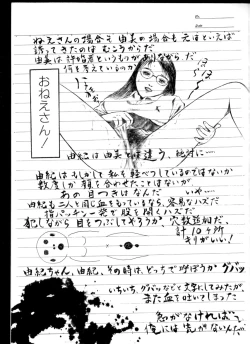 ねえさんの場合も由美の場合も元はといえば
誘ってきたのはむこうからだ
由美は許婚者というものがありながらだ
何を考えているのか
おねえさん!
由紀は由美とは違う、絶対に…
由紀はもしかして私を軽べつしているのではないか
数度しか顔を合わせたことはないが
あの目つきはなんだ いや…
由紀も二人と同じ血をもっているなら、容易なハズだ
指パッチン一発で股を開くハズだ
犯しながら目をつぶしてやろうか、穴数追加だ、
計10ヶ所
キリがいい!
由紀ちゃん、由紀、その時は、どっちで呼ぼうか グバッ
いちいち、グバッなどと文字にしてみたが、
また血を吐いてしまった
紙がなければ
俺には先がないんだ…